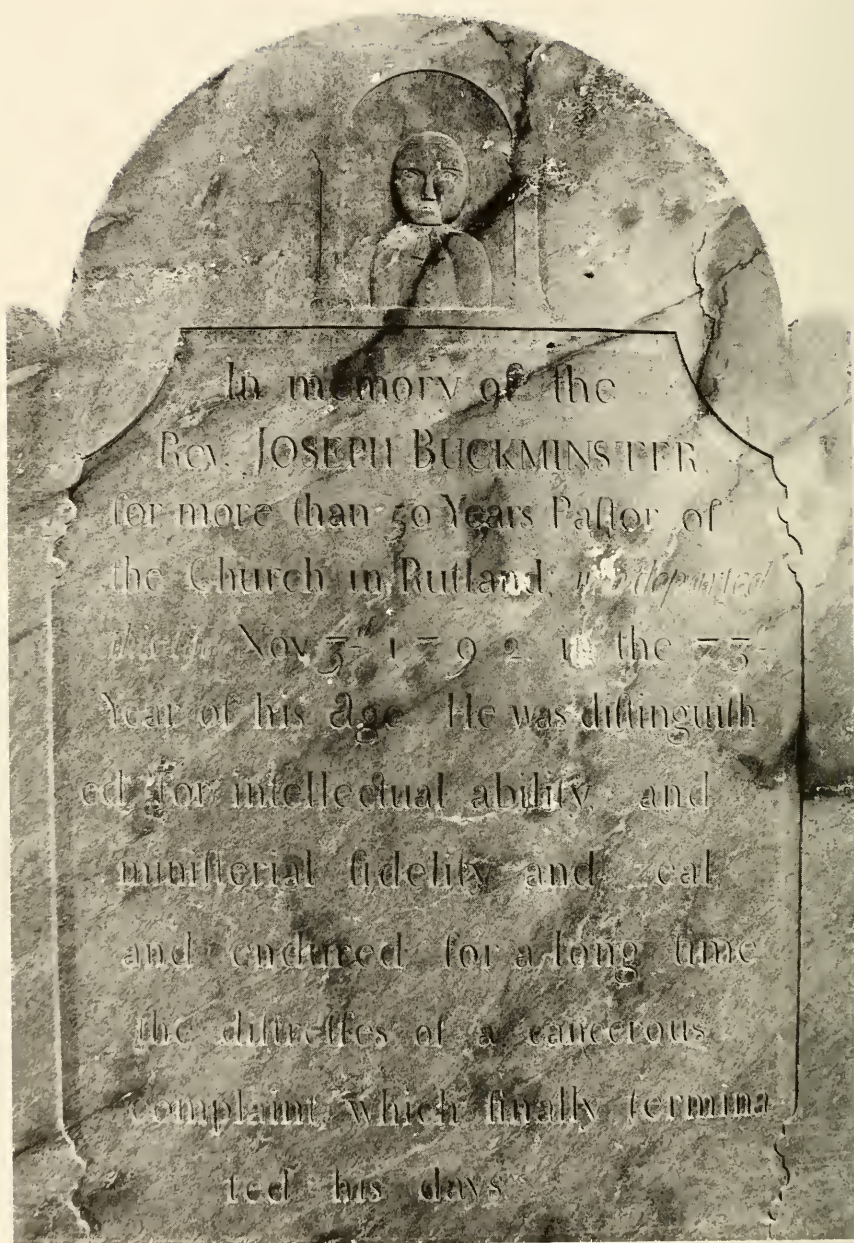 In memory of the
Rev. JOSEPH BUCKMINSTER,
for more than 50 Years Paſtor of
the Church in Rutland, who departed
this life Nov 3rd 1792 in the 73
Year of his Age. He was diſtinguiſh
ed for intellectual ability, and
miniſterial fidelity and zeal,
and endured for a long time
the diſtreſſes of a cancerous
complaint, which finally termina
ted his days